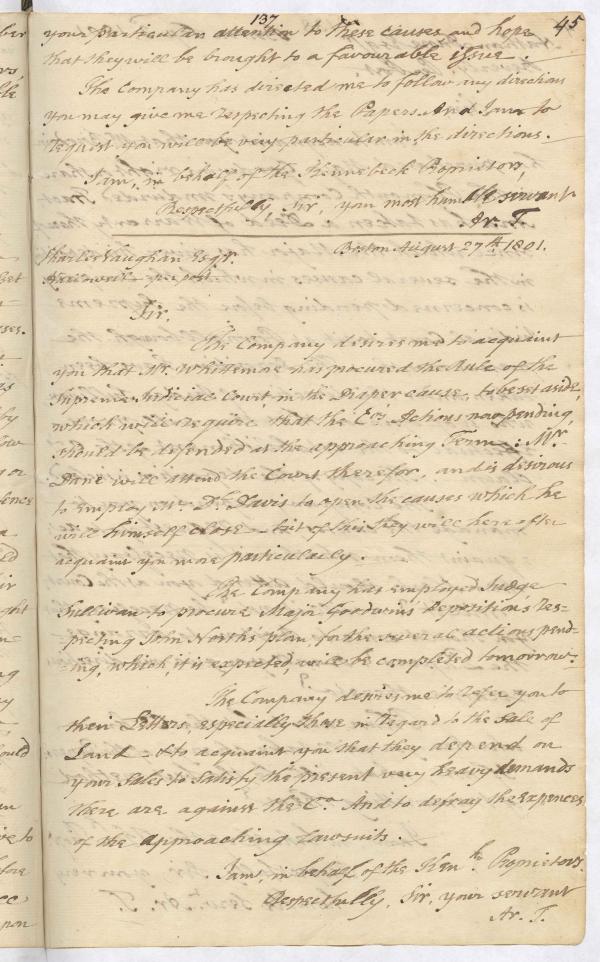 137
45
your particular attention to these causes and hope
that they will be brought to a favourable issue.
The Company has directed me to follow any directions
you may give me respecting the Papers. And I am to
request you will be very particular in the directions.
I am, in behalf of the Kennebeck Proprietors,
Respectfully, Sir, your most humble servant
Ar. T.
Boston August 27th. 1801.
Charles Vaughan Esqr.
Hallowell - per post
Sir.
The Company desires me to acquaint
you that Mr. Whittemore has procured the Rule of the
Supreme Judicial Court, in the Draper cause, to be set aside,
which will require that the Cos. Actions now pending,
should be defended at the approaching Term: Mr.
Dane will attend the Court therefor, and is desirous
to employ Mr. Dl. Davis to open the causes which he
will himself close - but of this they will hereafter
acquaint you more particularly.
The Company has employed Judge
Sullivan to procure Major Goodwins depositions res-
pecting John North's plan, for the several actions pend-
ing, which, it is expected, will be completed tomorrow.
The Company desires me to refer you to
their Letters, especially those in regard to the sale of
Land - & to acquaint you that they depend on
your sales to satisfy the present very heavy demands
there are against the Co. And to defray the expences
of the approaching lawsuits.
I am, in behalf of the Kenk. Proprietors.
Respectfully, Sir, your servant
Ar. T.